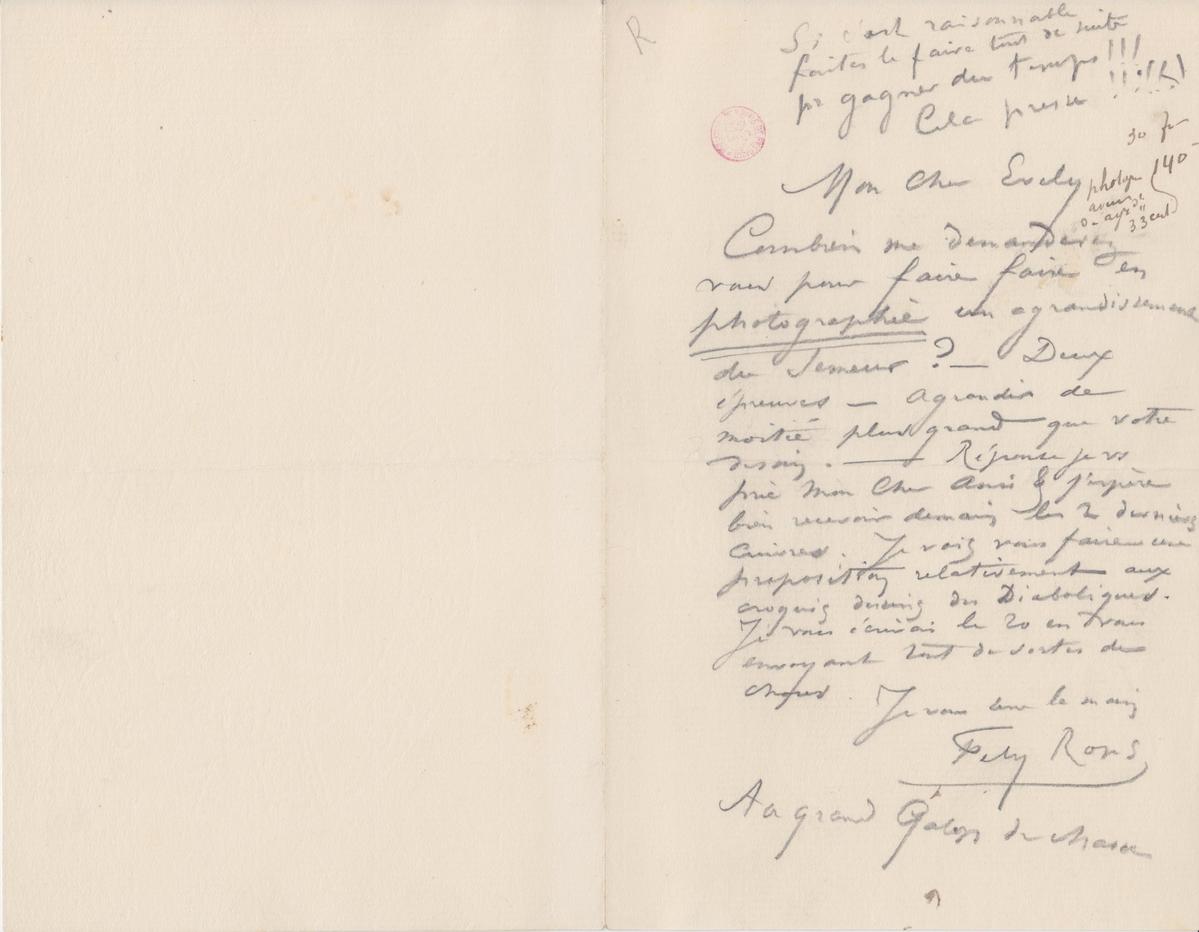 R
Si c'est raisonnable
faites le faire tout de suite
pr gagner du temps!!!
Cela presse !!!!!!
30 fr
140
photogr
33 cent
Mon Cher Evely
Combien me demanderez
vous pour faire faire en
photographie un agrandissement
du Semeur ? — Deux
épreuves — agrandir de
moitié plus grand que votre
dessin. — Réponse je vs
prie mon Cher Ami & j'espère
bien recevoir demain les 2 derniers
cuivres. Je vais vous faire une
proposition relativement aux
croquis dessins des Diaboliques.
Je vous écrirai le 20 en vous
envoyant tout de sortes de
choses. Je vous serre la main
Fely Rops
Au grand Galop de chasse